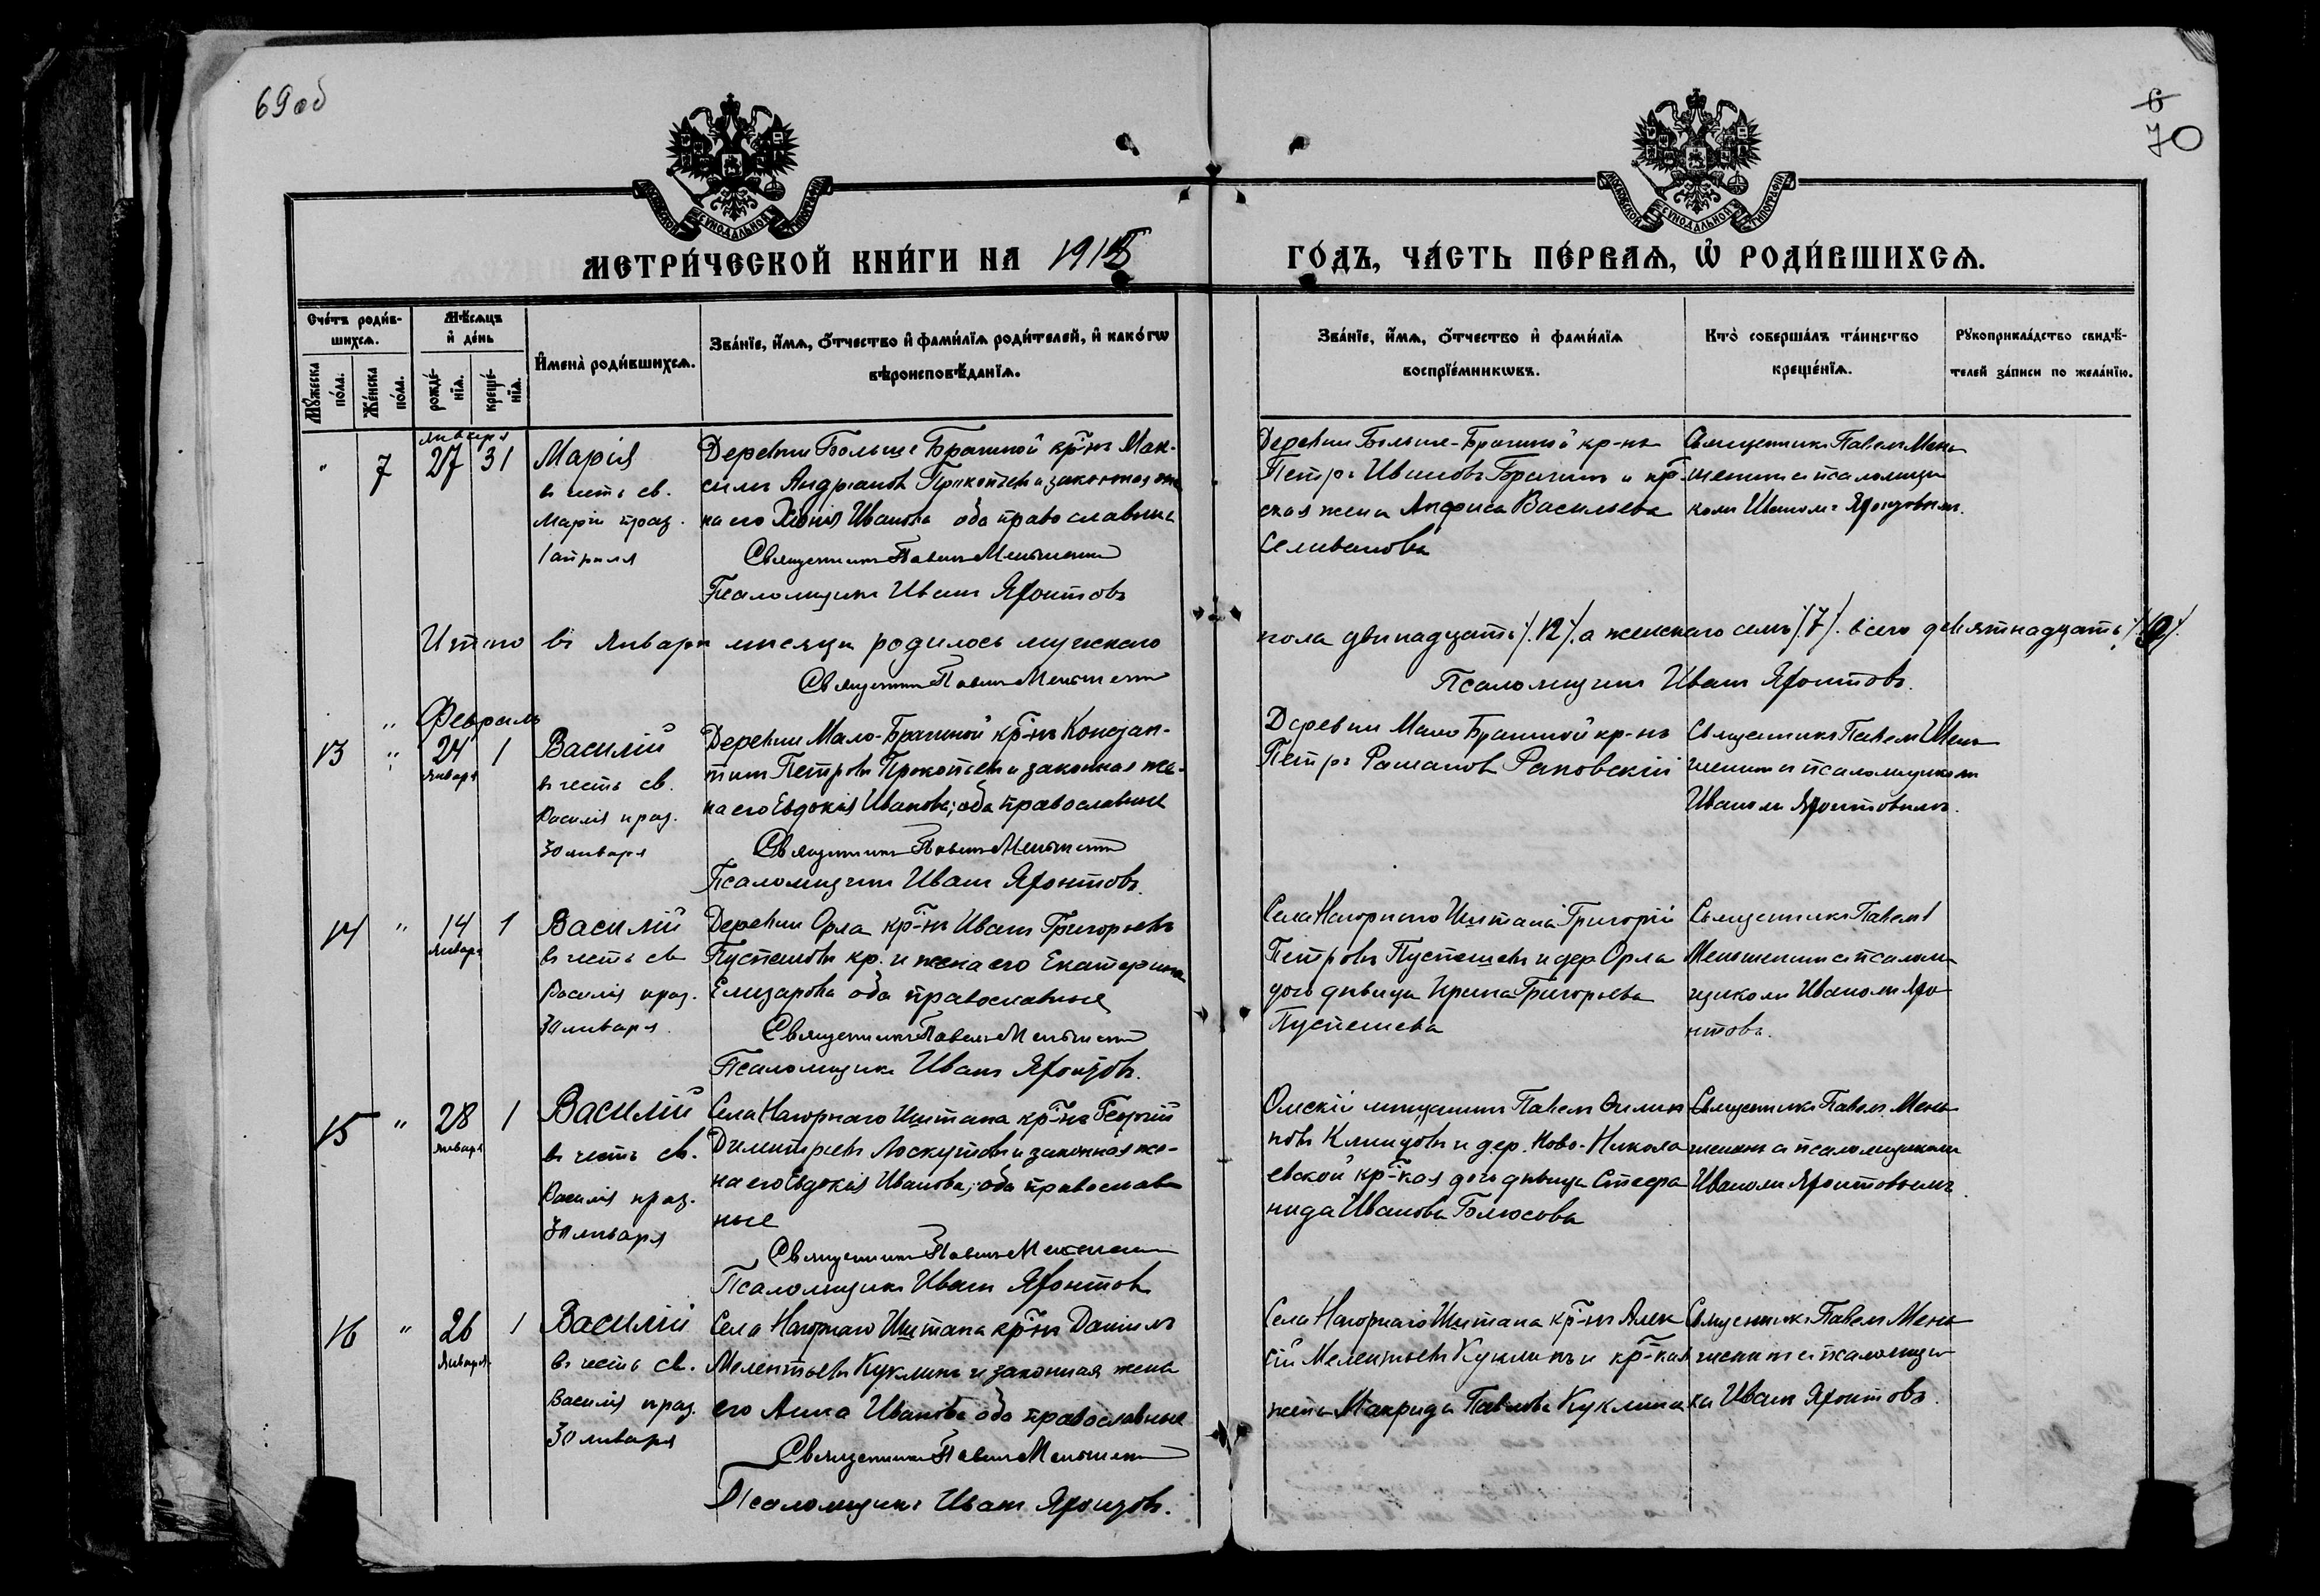 69 об
6
70
МОСКОВСКОЙ СѴНОДАЛЬНОЙ ТИПОГРАФІИ
МОСКОВСКОЙ СѴНОДАЛЬНОЙ ТИПОГРАФІИ
МЕТРИ́ЧЕСКОЙ КНИ́ГИ НА 191
ГО́ДЪ, ЧА́СТЬ ПЕ́РВАѦ, Ѡ҆ РОДИ́ВШИХСѦ.
Сче́тъ роди́в-
шихсѧ.
Мꙋ́жеска по́ла.
Же́нска по́ла.
Мѣ́сѧцъ
и҆ де́нь
рожде́-
нїѧ.
креще́-
нїѧ.
И҆мена̀ роди́вшихсѧ.
Зва́нїе, и҆́мѧ, ѻ҆́тчество и҆ фами́лїѧ роди́телей, и҆ како́гѡ
вѣроисповѣ́данїѧ.
Зва́нїе, и҆́мѧ, ѻ҆́тчество и҆ фами́лїѧ
воспрїе́мникѡвъ.
Кто̀ соверша́лъ та́инство
креще́нїѧ.
Рꙋкоприкла́дство свидѣ́-
телей за́писи по жела́нїю.
января
" 7 27 31
Марія
въ честь св.
Маріи праз.
1 апреля
Деревни Больше Брагиной кр-нъ Мак-
симъ Андреановъ Прокопьевъ и законная же
на его Хіонія Иванова оба православные
Священникъ Павелъ Меньшенинъ
Псаломщикъ Иванъ Яхонтовъ
Деревни Больше-Брагиной кр-нъ
Петръ Ивановъ Брагинъ и кр-
ская жена Анфиса Васильева
Селиванова
Священникъ Павелъ Мень
шенинъ с псаломщи
комъ Иваномъ Яхонтовымъ.
Итого въ Январѣ месяцѣ родилось мужского
пола двѣнадцать /12/ а женскаго семь /7/ всего девятнадцать /19/.
Священникъ Павелъ Меньшенинъ
Псаломщикъ Иванъ Яхонтовъ.
Февраль
13 " 24 1
января
Василій
въ честь св.
Василія праз.
30 января
Деревни Мало-Брагиной кр-нъ
тинъ Петровъ Прокопьевъ и законная же-
на его Евдокія Иванова; оба православные
Священникъ Павелъ Меньшенинъ
Псаломщикъ Иванъ Яхонтовъ.
Деревни Мало Брагиной кр-нъ
Петръ Рамановъ Раковскій
Священникъ Павелъ Мень
шенинъ с псаломщикомъ
Иваномъ Яхонтовымъ.
14 " 14 1
января
Василій
въ честь св
Василія праз.
30 января.
Деревни Орла кр-нъ Иванъ Григорьевъ
Пустешевъ кр. и жена его Екатерина
Елизарова оба православные
Священникъ Павелъ Меньшенинъ
Псаломщикъ Иванъ Яхонтовъ.
Села Нагорнаго Иштана Григорій
Петровъ Пустешевъ и дер Орла
дочь дѣвица Ирина Григорьева
Пустешева
Священникъ Павелъ
Меньшенинъ с псалом
щикомъ Иваномъ Яхо
нтовъ.
15 " 28 1
января
Василій
въ честь св.
Василія праз.
30 января
Села Нагорнаго Иштана кр-нъ Георгій
Димитріевъ Лоскутовъ и законная же-
на его Евдокія Иванова; оба православ
ные
Священникъ Павелъ Меньшенинъ
Псаломщикъ Иванъ Яхонтовъ
Омскій мещанинъ Павелъ Филип
повъ Климцовъ и дер. Ново-Никола
евской кр-кая дочь дѣвица Стефа
нида Иванова Белюсова
Священникъ Павелъ Мень
шенинъ с псаломщикомъ
Иваномъ Яхонтовымъ.
16 " 26 1
января.
Василій
въ честь св.
Василія праз.
30 января
Села Нагорнаго Иштана кр-нъ Даніилъ
Мелентьевъ Куклинъ и законная жена
его Анна Иванова оба православные
Священникъ Павелъ Меньшенинъ
Псаломщикъ Иванъ Яхонтовъ.
Села Нагорнаго Иштана кр-нъ Алек
сій Мелентьевъ Куклинъ и кр-кая
жена Макрида Павлова Куклина
Священникъ Павелъ Мень
шенинъ с псаломщи
ка Иванъ Яхонтовъ.